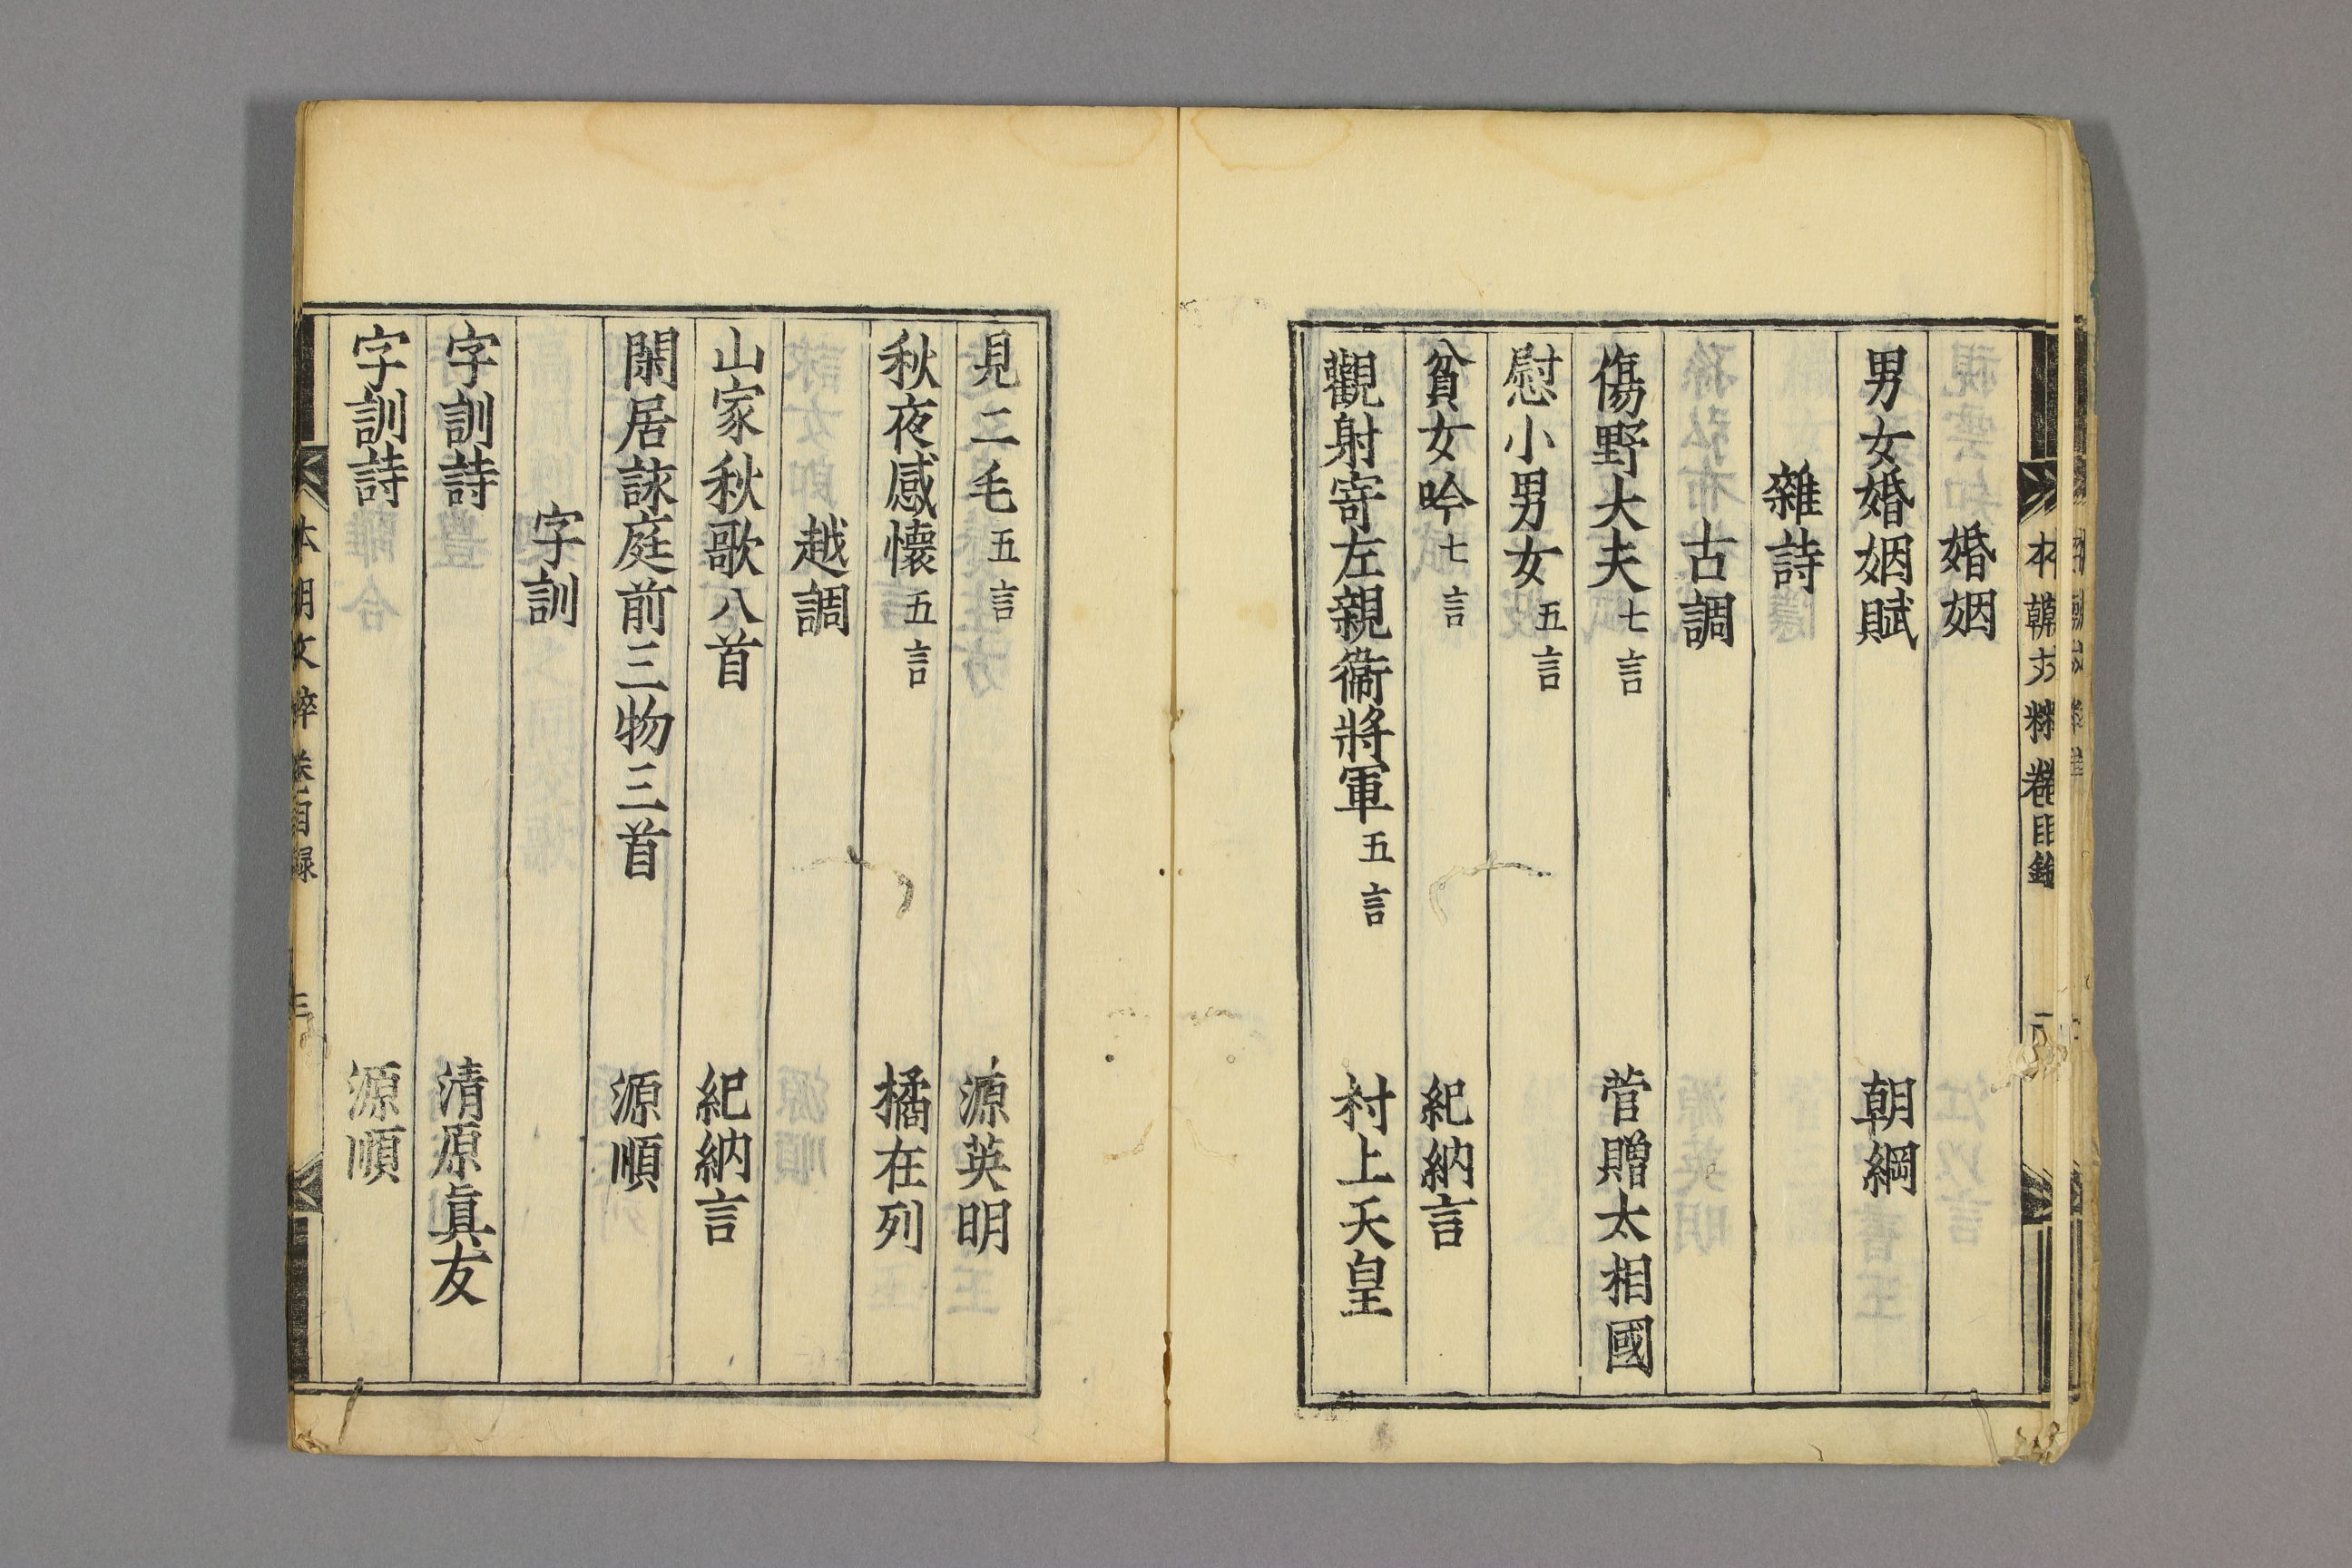 婚姻
男女婚姻賦 朝綱
雜詩
古調
傷野大夫七言 菅贈太相國
慰小男女五言
貧女吟七言 紀納言
觀射寄左親衞將軍五言 村上天皇
見二毛五言 源英明
秋夜感懷五言 橘在列
越調
山家秋歌八首 紀納言
閑居詠庭前三物三首 源順
字訓
字訓詩 清原眞友
字訓詩 源順
本朝文粹 卷一目録 三